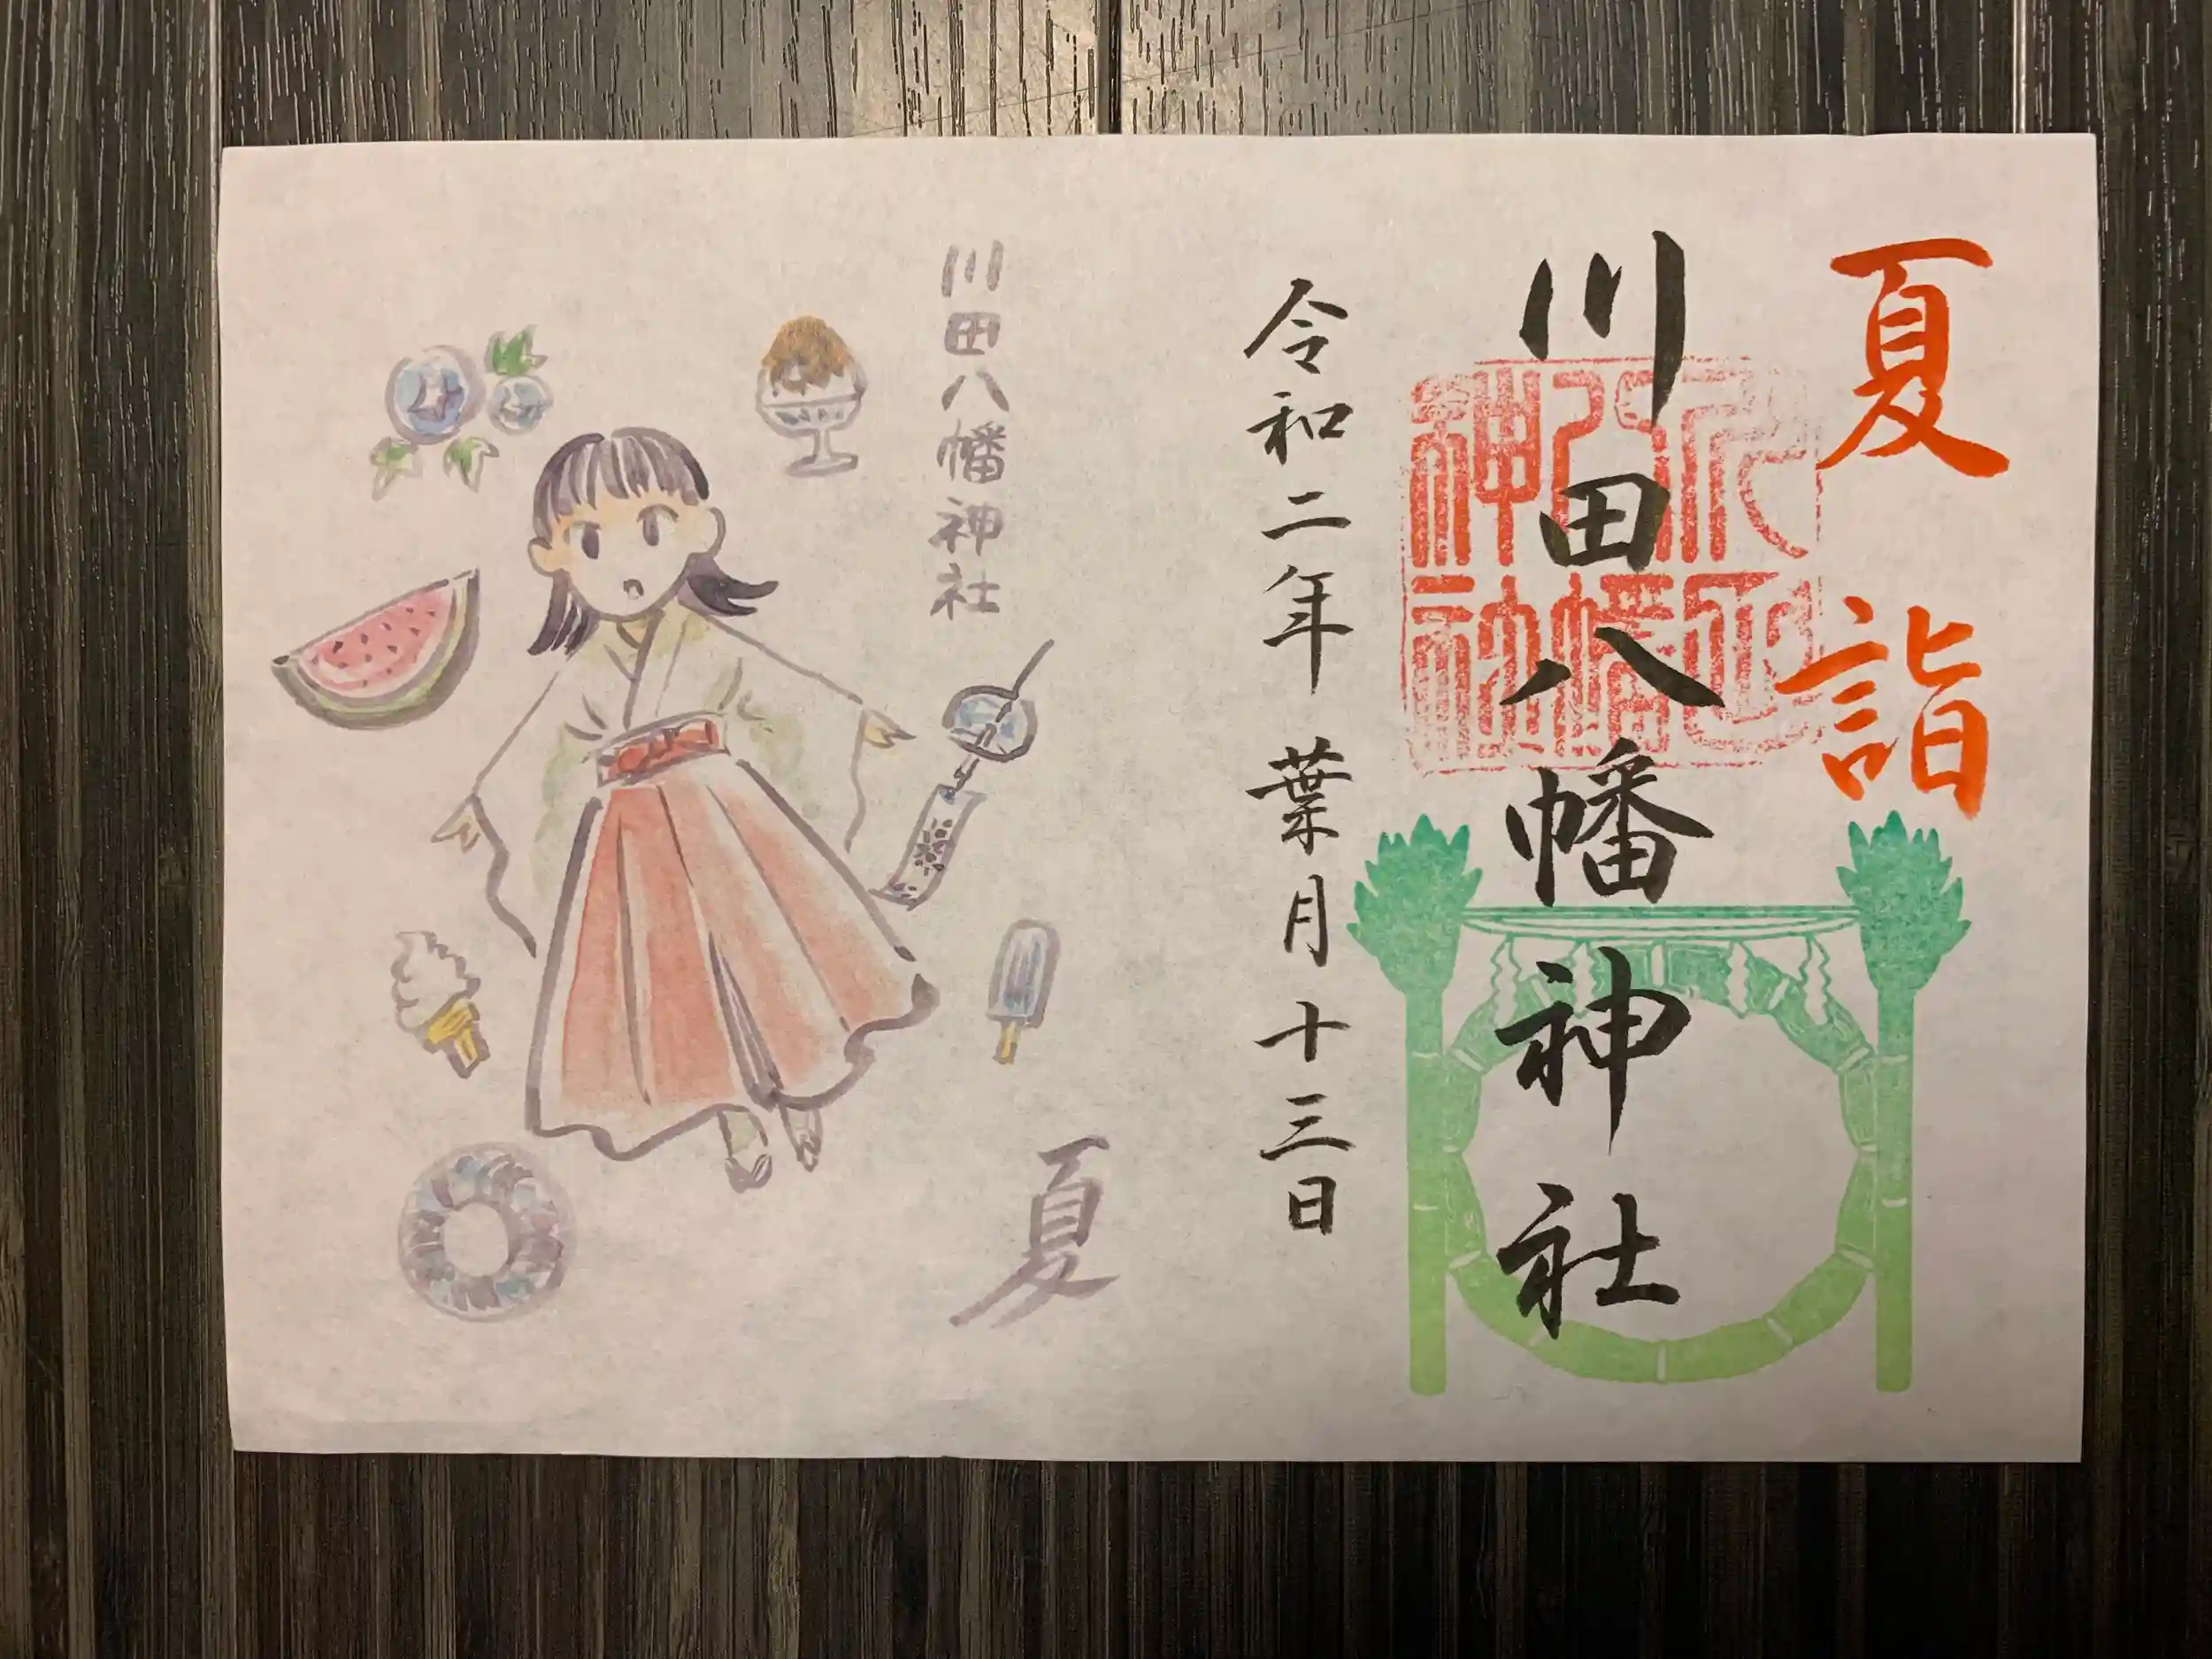 夏詣
川田八幡神社
令和二年 葉月十三日
川田八幡神社
夏